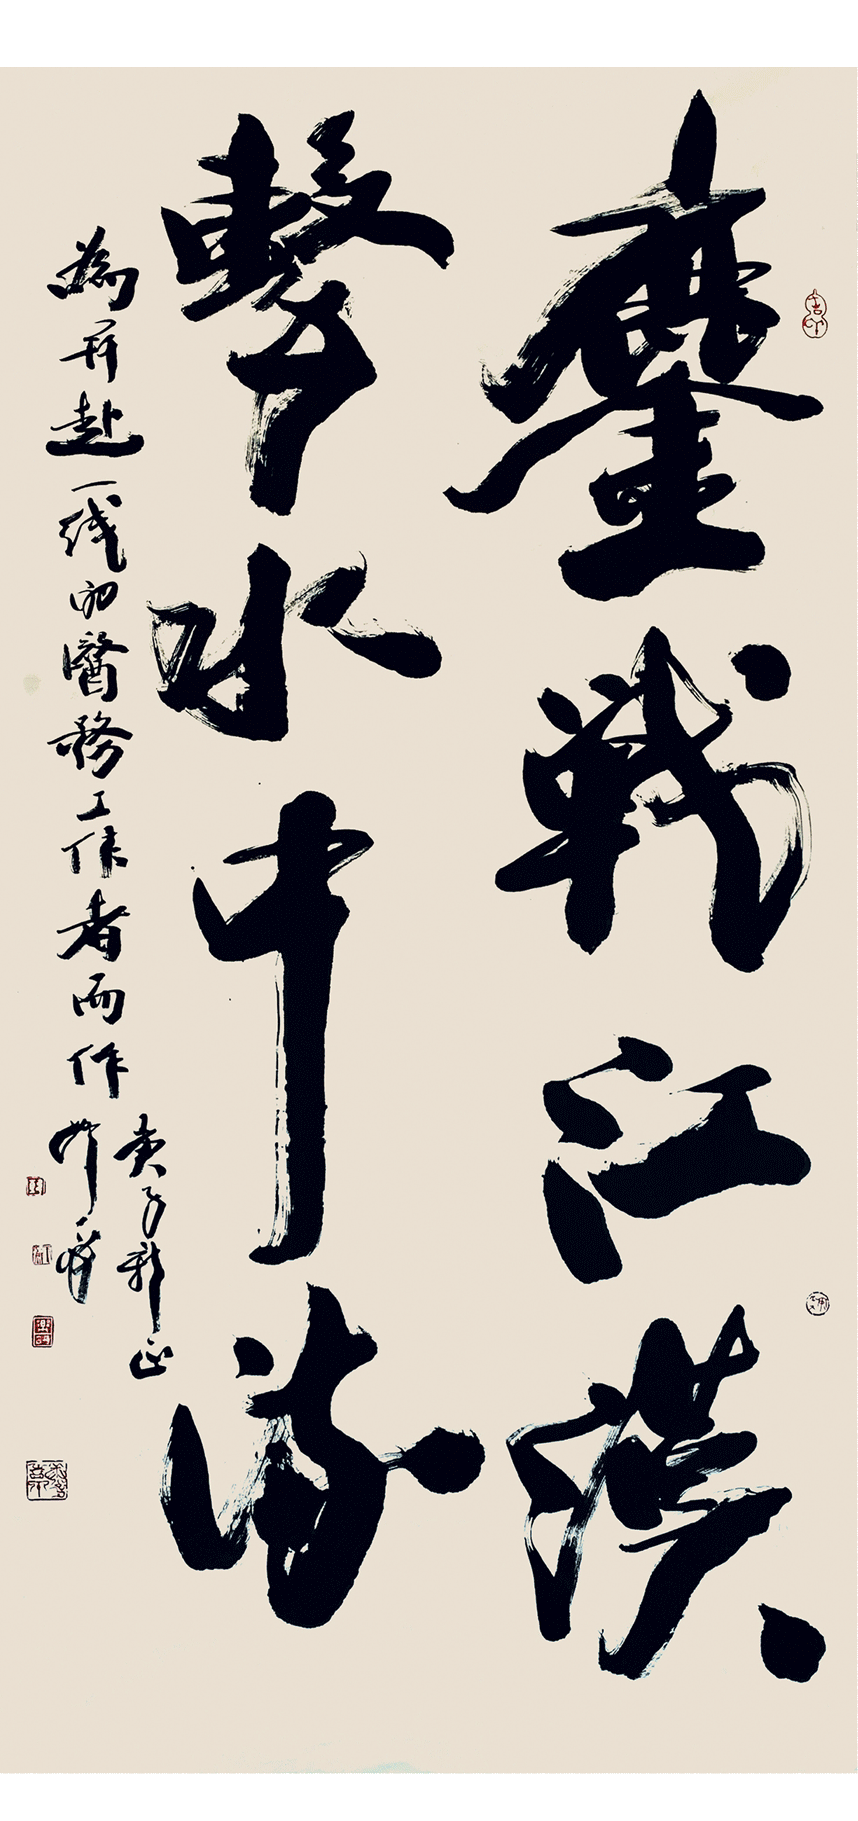 鏖戰江漢
擊水中流
為奔赴一线的醫務工作者而作
庚子新正